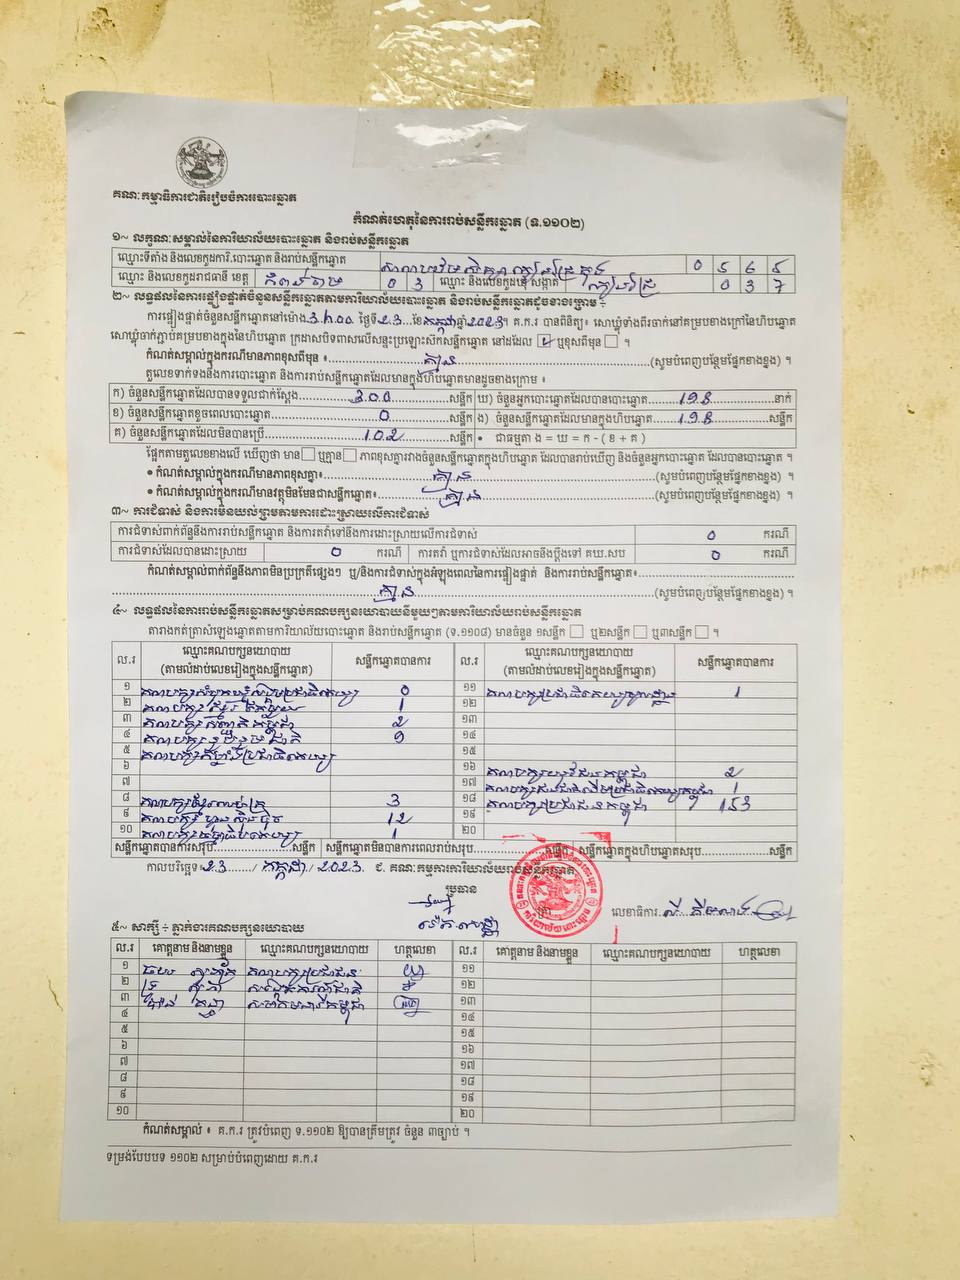 គណៈកម្មាធិការជាតិរៀបចំការបោះឆ្នោត
កំណត់ហេតុនៃការរាប់សន្លឹកឆ្នោត (ទ.១១០២)
១~ លក្ខណៈសម្គាល់នៃការិយាល័យបោះឆ្នោត និងរាប់សន្លឹកឆ្នោត
ឈ្មោះទីតាំង និងលេខកូដការិ.បោះឆ្នោត និងរាប់សន្លឹកឆ្នោត 0 5 6 5
ឈ្មោះ និងលេខកូដរាជធានី ខេត្ត កំពង់ចាម 0 3 ឈ្មោះ និងលេខកូដឃុំ សង្កាត់ 0 3 7
២~ លទ្ធផលនៃការផ្ទៀងផ្ទាត់ចំនួនសន្លឹកឆ្នោតតាមការិយាល័យបោះឆ្នោត និងរាប់សន្លឹកឆ្នោតដូចខាងក្រោម ÷
ការផ្ទៀងផ្ទាត់ចំនួនសន្លឹកឆ្នោតនៅម៉ោង 3h00 ថ្ងៃទី 23 ខែ កក្កដា ឆ្នាំ 2023 ។ គ.ក.រ បានពិនិត្យ៖ សោឃ្លុំទាំងពីរចាក់នៅគម្របខាងក្រៅនៃហិបឆ្នោត
សោឃ្លុំចាក់ភ្ជាប់គម្របខាងក្នុងនៃហិបឆ្នោត ក្រដាសបិទពាសលើសន្ទះប្រឡោះស៊កសន្លឹកឆ្នោត នៅដដែល ឬខុសពីមុន ។
កំណត់សម្គាល់ក្នុងករណីមានភាពខុសពីមុន ៖ គ្មាន (សូមបំពេញបន្ថែមផ្នែកខាងខ្នង) ។
តួលេខទាក់ទងនឹងការបោះឆ្នោត និងការរាប់សន្លឹកឆ្នោតដែលមានក្នុងហិបឆ្នោតមានដូចខាងក្រោម ៖
ក) ចំនួនសន្លឹកឆ្នោតដែលបានទទួលជាក់ស្តែង 300 សន្លឹក ឃ) ចំនួនអ្នកបោះឆ្នោតដែលបានបោះឆ្នោត 198 នាក់
ខ) ចំនួនសន្លឹកឆ្នោតខូចពេលបោះឆ្នោត 0 សន្លឹក ង) ចំនួនសន្លឹកឆ្នោតដែលមានក្នុងហិបឆ្នោត 198 សន្លឹក
គ) ចំនួនសន្លឹកឆ្នោតដែលមិនបានប្រើ 102 សន្លឹក • ជាធម្មតា ង = ឃ = ក - ( ខ + គ )
ផ្អែកតាមតួលេខខាងលើ ឃើញថា មាន ឬគ្មាន ភាពខុសគ្នារវាងចំនួនសន្លឹកឆ្នោតក្នុងហិបឆ្នោត ដែលបានរាប់ឃើញ និងចំនួនអ្នកបោះឆ្នោត ដែលបានបោះឆ្នោត ។
• កំណត់សម្គាល់ក្នុងករណីមានភាពខុសគ្នា៖ គ្មាន (សូមបំពេញបន្ថែមផ្នែកខាងខ្នង) ។
• កំណត់សម្គាល់ក្នុងករណីមានវត្ថុមិនមែនជាសន្លឹកឆ្នោត៖ គ្មាន (សូមបំពេញបន្ថែមផ្នែកខាងខ្នង) ។
៣~ ការជំទាស់ និងការមិនយល់ព្រមតាមការដោះស្រាយលើការជំទាស់
ការជំទាស់ពាក់ព័ន្ធនឹងការរាប់សន្លឹកឆ្នោត និងការតវ៉ាទៅនឹងការដោះស្រាយលើការជំទាស់ 0 ករណី
ការជំទាស់ដែលបានដោះស្រាយ 0 ករណី ការតវ៉ា ឬការជំទាស់ដែលអាចនឹងប្តឹងទៅ គឃ.សប 0 ករណី
កំណត់សម្គាល់ពាក់ព័ន្ធនឹងភាពមិនប្រក្រតីផ្សេងៗ ឬ/និងការជំទាស់ក្នុងអំឡុងពេលនៃការផ្ទៀងផ្ទាត់ និងការរាប់សន្លឹកឆ្នោត៖
គ្មាន (សូមបំពេញបន្ថែមផ្នែកខាងខ្នង) ។
៤~ លទ្ធផលនៃការរាប់សន្លឹកឆ្នោតសម្រាប់គណបក្សនយោបាយនីមួយៗតាមការិយាល័យរាប់សន្លឹកឆ្នោត
តារាងកត់ត្រាសំឡេងឆ្នោតតាមការិយាល័យបោះឆ្នោត និងរាប់សន្លឹកឆ្នោត (ទ.១១០៨) មានចំនួន ១សន្លឹក ឬ២សន្លឹក ឬ៣សន្លឹក ។
ល.រ ឈ្មោះគណបក្សនយោបាយ (តាមលំដាប់លេខរៀងក្នុងសន្លឹកឆ្នោត) សន្លឹកឆ្នោតបានការ ល.រ ឈ្មោះគណបក្សនយោបាយ (តាមលំដាប់លេខរៀងក្នុងសន្លឹកឆ្នោត) សន្លឹកឆ្នោតបានការ
១ 0 ១១ 1
២ 1 ១២
៣ 2 ១៣
៤ 9 ១៤
៥ ១៥
៦ ១៦ គណបក្សយុវជនកម្ពុជា 2
៧ ១៧ 1
៨ 3 ១៨ គណបក្សប្រជាជនកម្ពុជា 153
៩ គណបក្សហ៊្វុនស៊ិនប៉ិច 12 ១៩
១០ 1 ២០
សន្លឹកឆ្នោតបានការសរុប សន្លឹក សន្លឹកឆ្នោតមិនបានការពេលរាប់សរុប សន្លឹក សន្លឹកឆ្នោតក្នុងហិបឆ្នោតសរុប សន្លឹក
កាលបរិច្ឆេទ 23 / កក្កដា / 2023 ជ. គណៈកម្មការការិយាល័យរាប់សន្លឹកឆ្នោត
ប្រធាន
លេខាធិការ
៥~ សាក្សី ÷ ភ្នាក់ងារគណបក្សនយោបាយ
ល.រ គោត្តនាម និងនាមខ្លួន ឈ្មោះគណបក្សនយោបាយ ហត្ថលេខា ល.រ គោត្តនាម និងនាមខ្លួន ឈ្មោះគណបក្សនយោបាយ ហត្ថលេខា
១ គណបក្សប្រជាជន ១១
២ ១២
៣ ១៣
៤ ១៤
៥ ១៥
៦ ១៦
៧ ១៧
៨ ១៨
៩ ១៩
១០ ២០
កំណត់សម្គាល់ ៖ គ.ក.រ ត្រូវបំពេញ ទ.១១០២ ឱ្យបានត្រឹមត្រូវ ចំនួន ៣ច្បាប់ ។
ទម្រង់បែបបទ ១១០២ សម្រាប់បំពេញដោយ គ.ក.រ